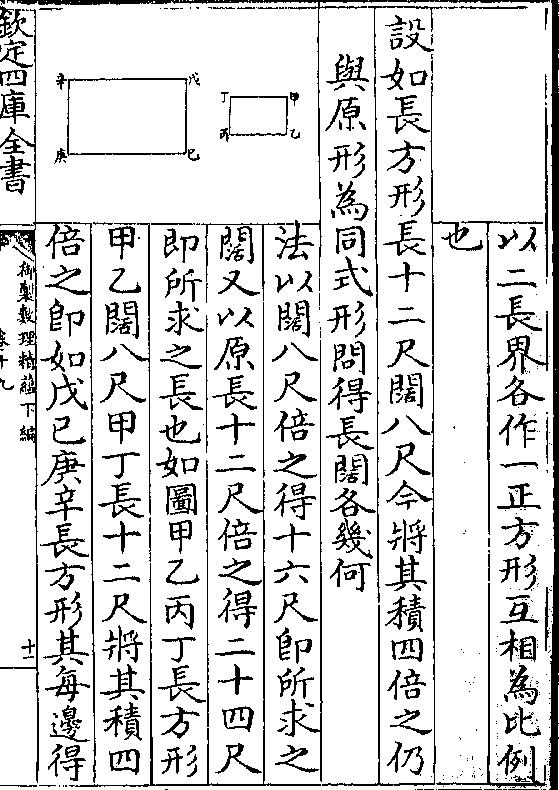 以二長界各作一正方形互相為比例
也
設如長方形長十二尺闊八尺今將其積四倍之仍
與原形為同式形問得長闊各幾何
法以闊八尺倍之得十六尺即所求之
闊又以原長十二尺倍之得二十四尺
即所求之長也如圖甲乙丙丁長方形
甲乙闊八尺甲丁長十二尺將其積四
倍之即如戊己庚辛長方形其每邊得
甲
乙
丁
丙
戊
己
辛
庚
欽定四庫全書
御製數理精蘊下編
卷十九
十二